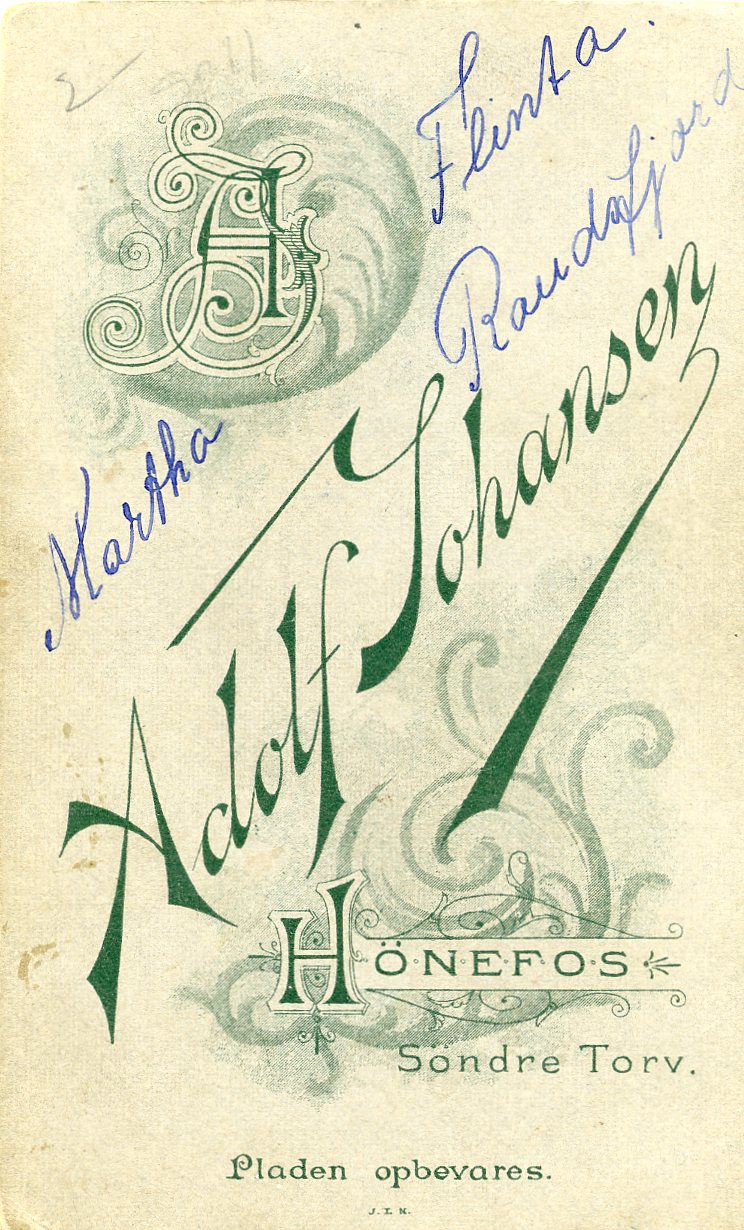 2
Flinta.
Randsfjord
Martha
AJ
Adolf Johansen
HÖNEFOS
Söndre Torv.
Pladen opbevares.
J.I.N.